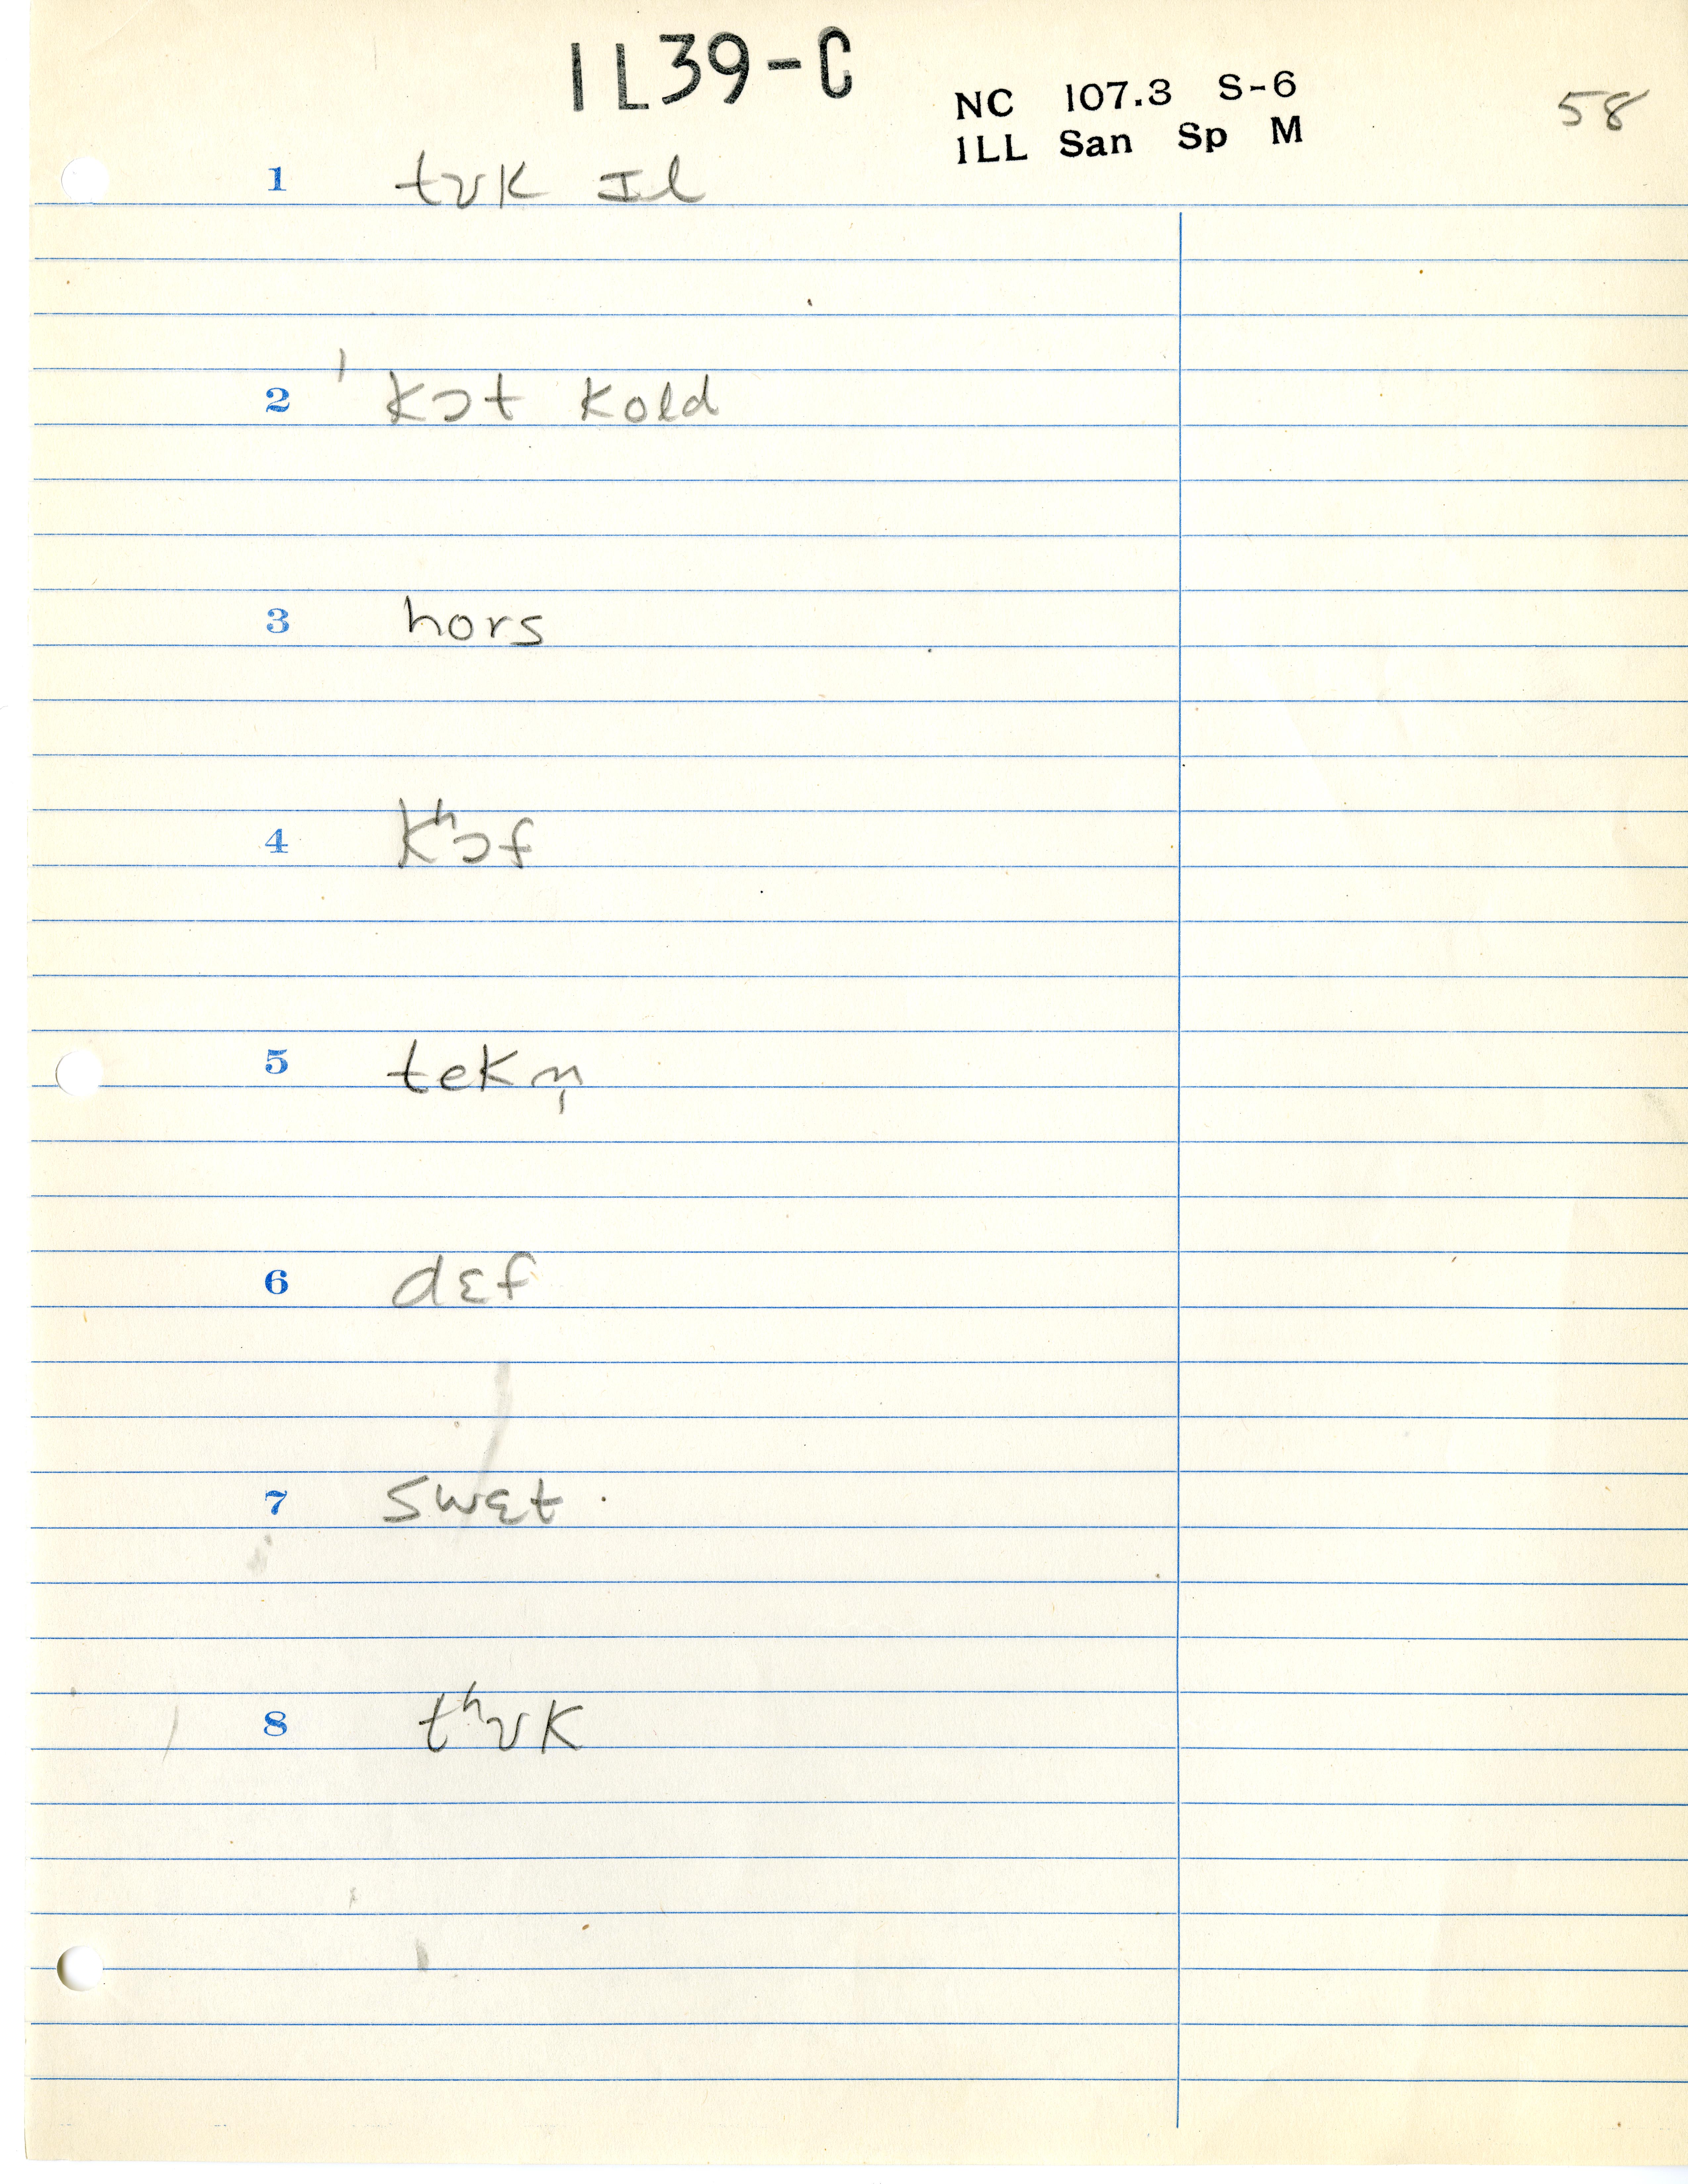 IL39-C
NC 107.3 S-6
ILL San Sp M
58
1 tʊk ɪl
2 kɔt kold
3 hors
4 kʰɔf
5 tekn̩
6 dɛf
7 swɛt
8 tʰʊk